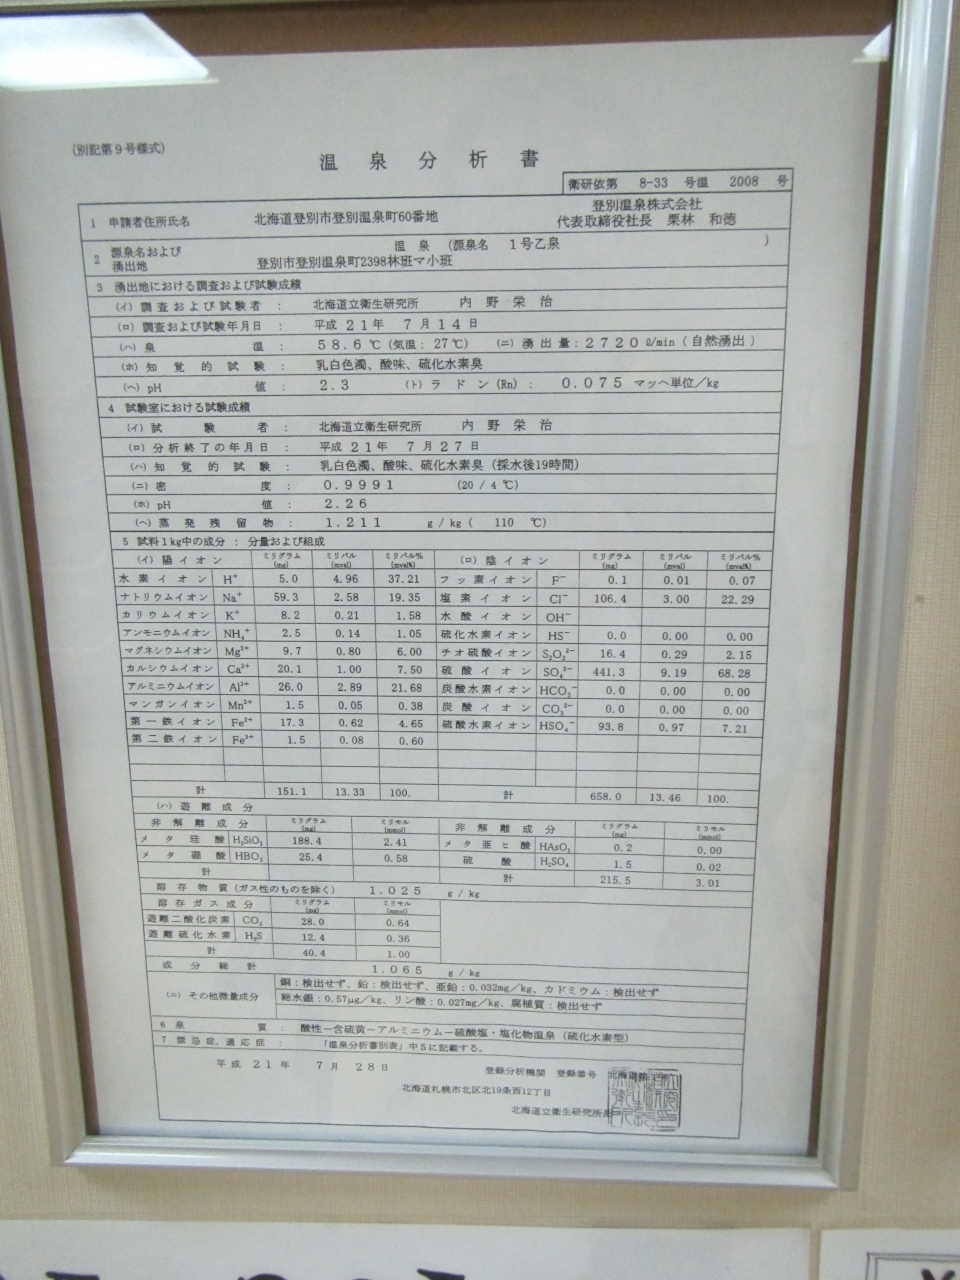 (別記第9号様式)
温泉分析書
衛研依第 8-33 号温 2008 号
1 申請者住所氏名 北海道登別市登別温泉町60番地 登別温泉株式会社
代表取締役社長 栗林 和徳
2 源泉名および湧出地 温泉 (源泉名 1号乙泉 )
登別市登別温泉町2398林班マ小班
3 湧出地における調査および試験成績
(イ) 調査および試験者 : 北海道立衛生研究所 内野栄治
(ロ) 調査および試験年月日 : 平成21年 7月14日
(ハ) 泉温 : 58.6℃ (気温: 27℃) (ニ) 湧出量: 2720 ℓ/min (自然湧出)
(ホ) 知覚的試験 : 乳白色濁、酸味、硫化水素臭
(ヘ) pH値 : 2.3 (ト) ラドン(Rn) : 0.075 マッヘ単位/kg
4 試験室における試験成績
(イ) 試験者 : 北海道立衛生研究所 内野栄治
(ロ) 分析終了の年月日 : 平成21年 7月27日
(ハ) 知覚的試験 : 乳白色濁、酸味、硫化水素臭 (採水後19時間)
(ニ) 密度 : 0.9991 (20/4℃)
(ホ) pH値 : 2.26
(ヘ) 蒸発残留物 : 1.211 g/kg ( 110 ℃)
5 試料1kg中の成分 : 分量および組成
(イ) 陽イオン ミリグラム(mg) ミリバル(mval) ミリバル%(mval%) (ロ) 陰イオン ミリグラム(mg) ミリバル(mval) ミリバル%(mval%)
水素イオン H⁺ 5.0 4.96 37.21 フッ素イオン F⁻ 0.1 0.01 0.07
ナトリウムイオン Na⁺ 59.3 2.58 19.35 塩素イオン Cl⁻ 106.4 3.00 22.29
カリウムイオン K⁺ 8.2 0.21 1.58 水酸イオン OH⁻
アンモニウムイオン NH₄⁺ 2.5 0.14 1.05 硫化水素イオン HS⁻ 0.0 0.00 0.00
マグネシウムイオン Mg²⁺ 9.7 0.80 6.00 チオ硫酸イオン S₂O₃²⁻ 16.4 0.29 2.15
カルシウムイオン Ca²⁺ 20.1 1.00 7.50 硫酸イオン SO₄²⁻ 441.3 9.19 68.28
アルミニウムイオン Al³⁺ 26.0 2.89 21.68 炭酸水素イオン HCO₃⁻ 0.0 0.00 0.00
マンガンイオン Mn²⁺ 1.5 0.05 0.38 炭酸イオン CO₃²⁻ 0.0 0.00 0.00
第一鉄イオン Fe²⁺ 17.3 0.62 4.65 硫酸水素イオン HSO₄⁻ 93.8 0.97 7.21
第二鉄イオン Fe³⁺ 1.5 0.08 0.60
計 151.1 13.33 100. 計 658.0 13.46 100.
(ハ) 遊離成分
非解離成分 ミリグラム(mg) ミリモル(mmol) 非解離成分 ミリグラム(mg) ミリモル(mmol)
メタ珪酸 H₂SiO₃ 188.4 2.41 メタ亜ヒ酸 HAsO₂ 0.2 0.00
メタ硼酸 HBO₂ 25.4 0.58 硫酸 H₂SO₄ 1.5 0.02
計 計 215.5 3.01
溶存物質 (ガス性のものを除く) 1.025 g/kg
溶存ガス成分 ミリグラム(mg) ミリモル(mmol)
遊離二酸化炭素 CO₂ 28.0 0.64
遊離硫化水素 H₂S 12.4 0.36
計 40.4 1.00
成分総計 1.065 g/kg
(ニ) その他微量成分 銅:検出せず、鉛:検出せず、亜鉛:0.032mg/kg、カドミウム:検出せず
総水銀:0.57μg/kg、リン酸:0.027mg/kg、腐植質:検出せず
6 泉質 : 酸性-含硫黄-アルミニウム-硫酸塩・塩化物温泉 (硫化水素型)
7 禁忌症、適応症 : 「温泉分析書別表」中5に記載する。
平成21年 7月28日
登録分析機関 登録番号 北海道第
北海道札幌市北区北19条西12丁目
北海道立衛生研究所長